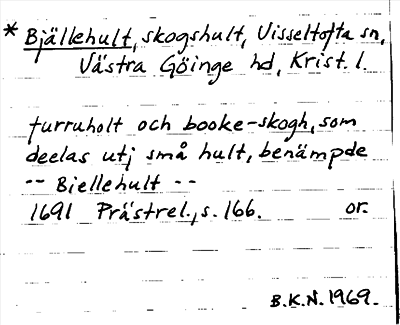 * Bjällehult, skogshult, Visseltofta sn,
Västra Göinge hd, Krist. l.
furruholt och booke-skogh, som
deelas utj små hult, benämpde
-- Biellehult --
1691 Prästrel., s. 166. or.
B.K.N. 1969.